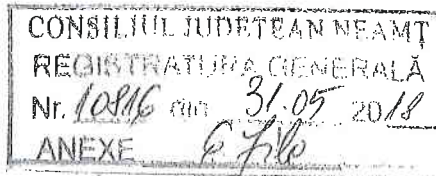 CONSILIUL JUDETEAN NEAMȚ
REGISTRATURA GENERALĂ
Nr. 10816 din 31.05 2018
ANEXE 6 file